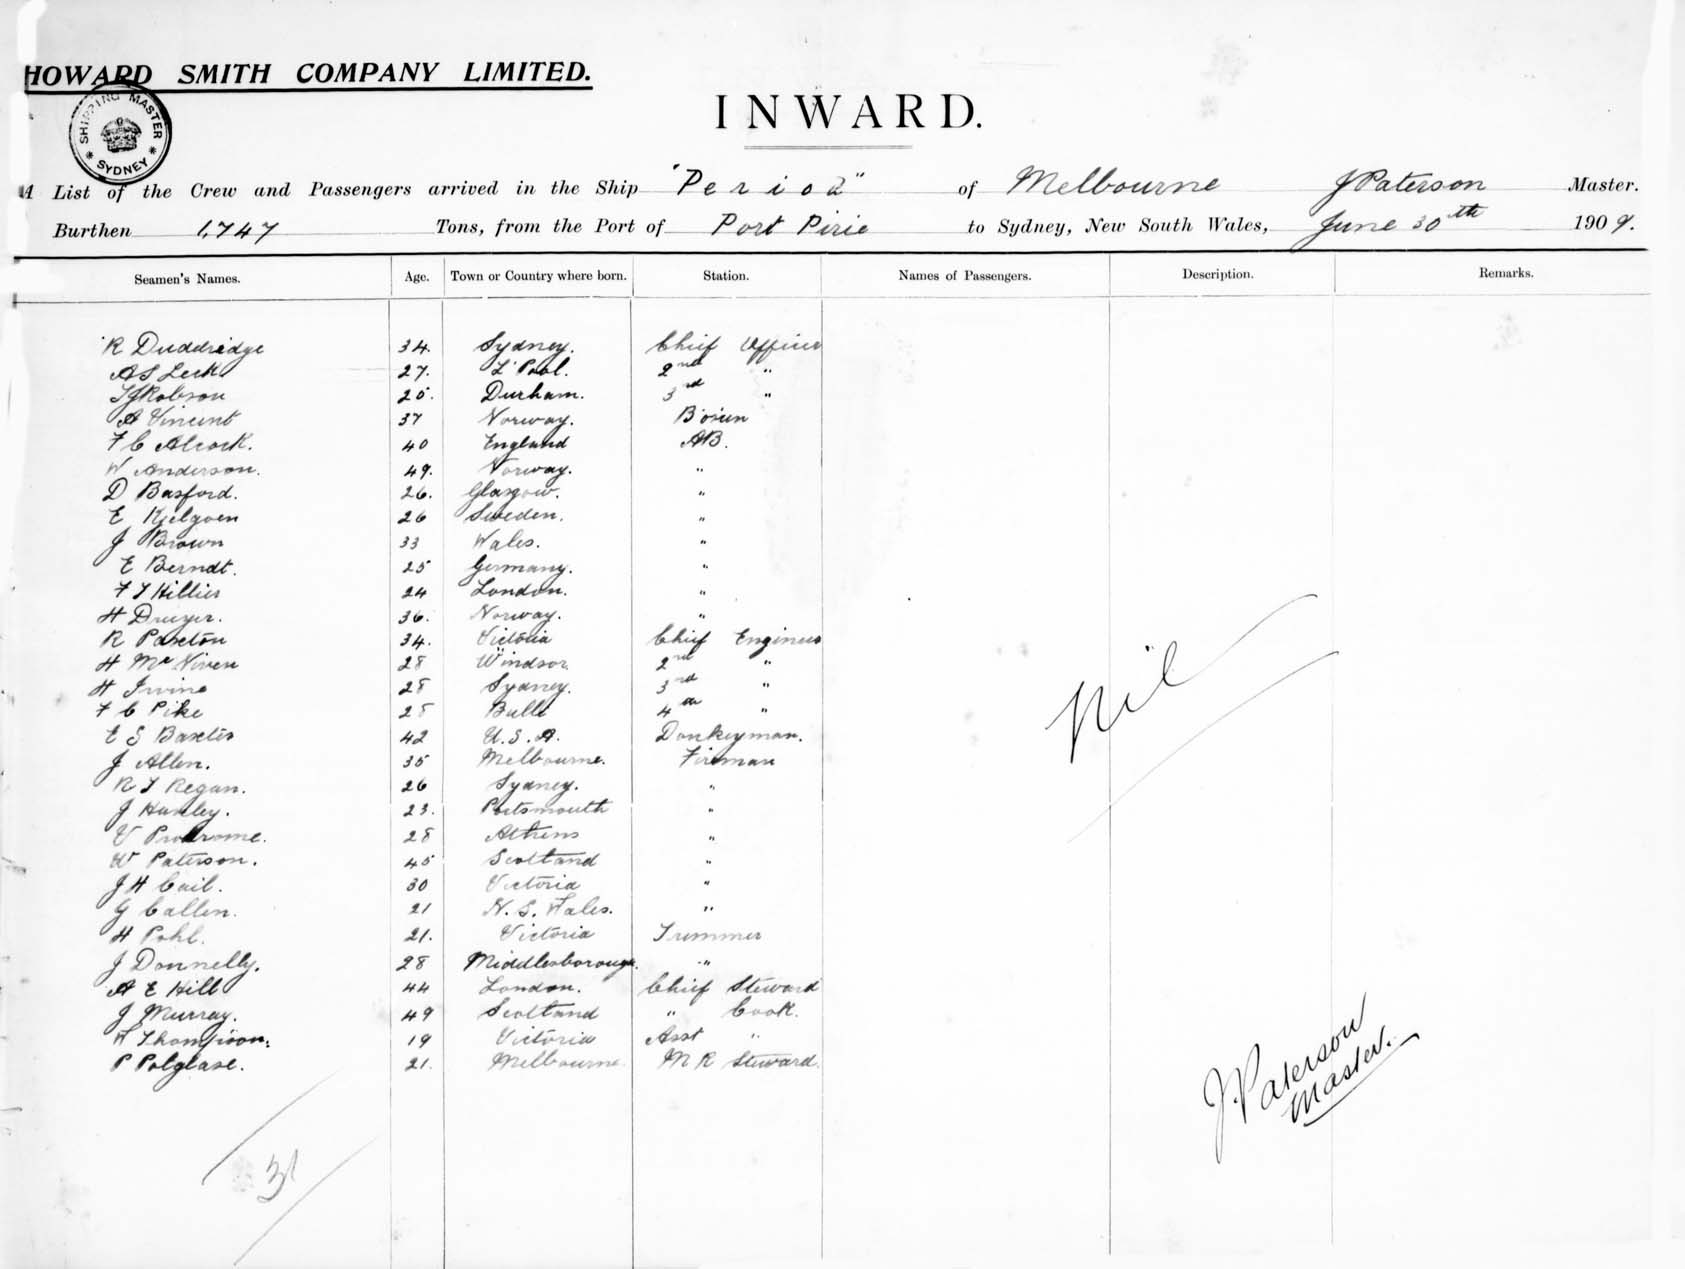 HOWARD SMITH COMPANY LIMITED.
SHIPPING MASTER
* SYDNEY *
INWARD.
A List of the Crew and Passengers arrived in the Ship "Period" of Melbourne J Paterson Master.
Burthen 1,747 Tons, from the Port of Port Pirie to Sydney, New South Wales, June 30th 1909.
Seamen's Names. Age. Town or Country where born. Station. Names of Passengers. Description. Remarks.
R Duddridge 34. Sydney. Chief Officer
A S Leck 27. L'Pool. 2nd "
Robson 25. Durham. 3rd "
A Vincent 37 Norway. Bo'sun
F C Alcock. 40 England AB.
W Anderson. 49. Norway. "
D Basford. 26. Glasgow. "
E 26 Sweden. "
J Brown 33 Wales. "
E Berndt. 25 Germany. "
F J Hillier 24 London. "
H Dreyer. 36. Norway. "
R Paxton 34. Victoria Chief Engineer
H McNiven 28 Windsor 2nd "
H Irvine 28 Sydney. 3rd "
F C Pike 28 Bulli 4th "
E S Baxter 42 U.S.A. Donkeyman.
J Allen. 35 Melbourne. Fireman
R J Regan. 26 Sydney. "
J Hanley. 23. Portsmouth "
V Prodrome. 28 Athens "
W Paterson. 45 Scotland "
J H Cail. 30 Victoria "
G Callen. 21 N.S. Wales. "
H Pohl. 21. Victoria Trimmer
J Donnelly. 28 Middlesborough. "
A E Hill 44 London. Chief Steward
J Murray. 49 Scotland " Cook.
Thompson. 19 Victoria Asst "
P Polglase. 21. Melbourne. M R Steward.
Nil
J. Paterson
Master.
31